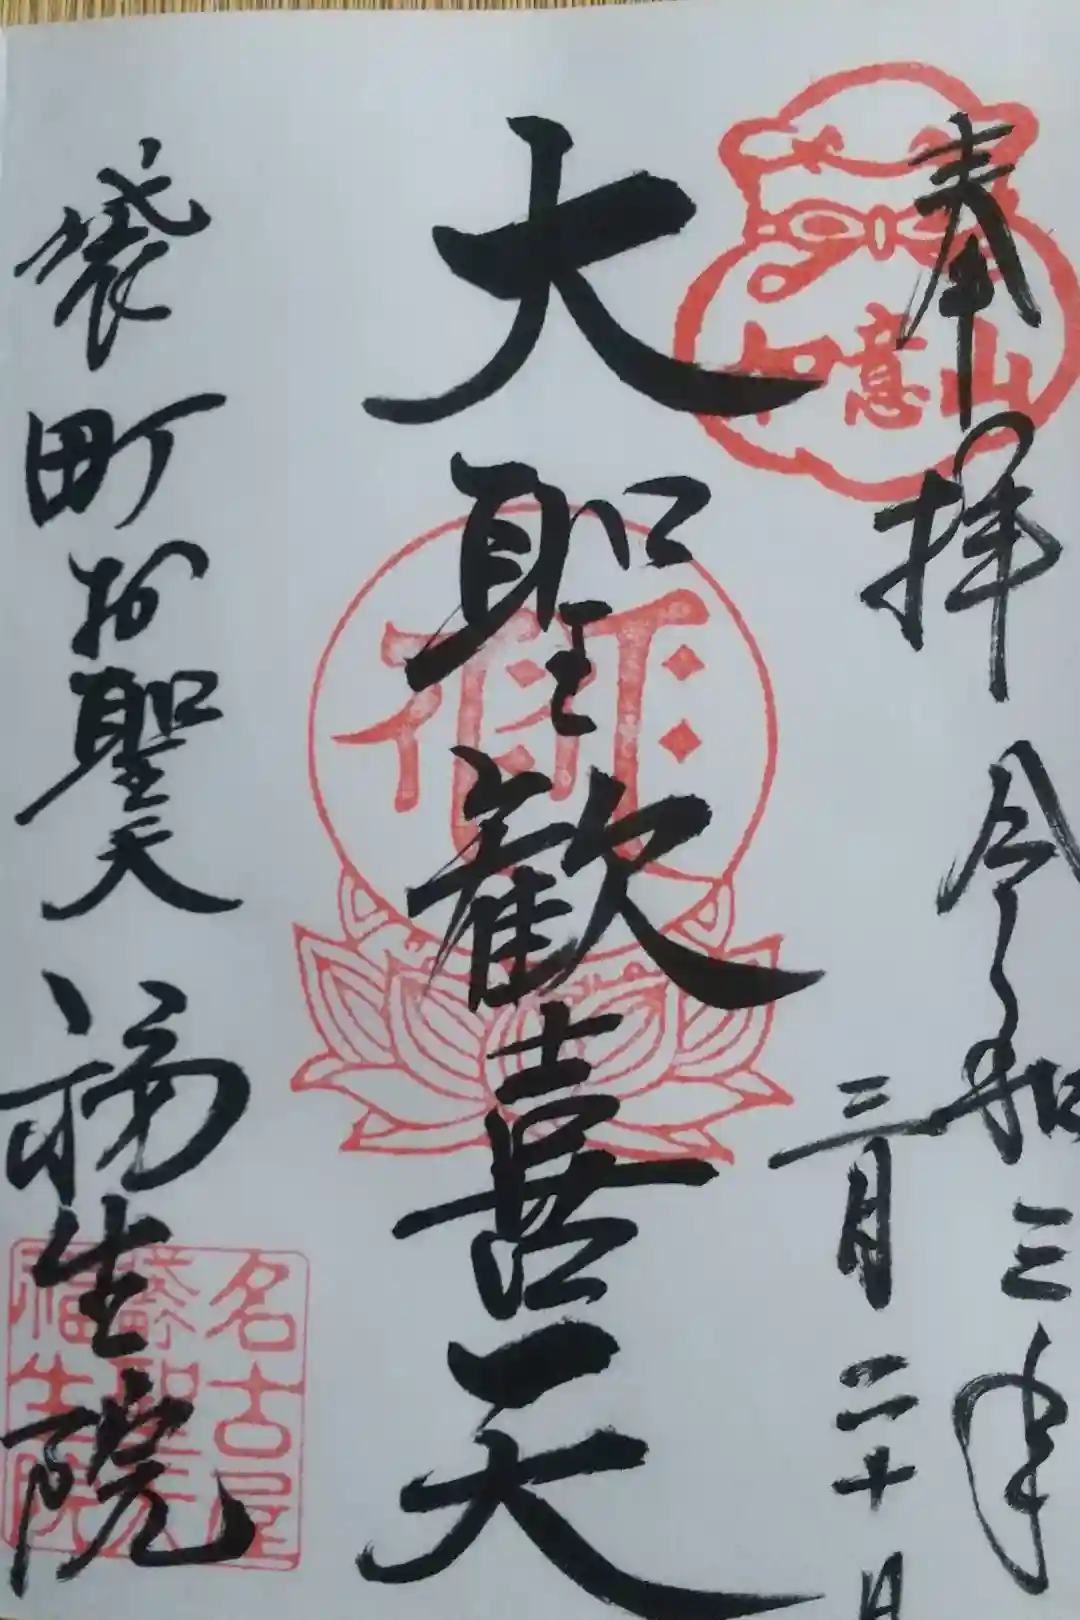 奉拝
令和三年
三月二十日
如意山
大聖歓喜天
袋町お聖天
福生院
名古屋
袋町聖天
福生院